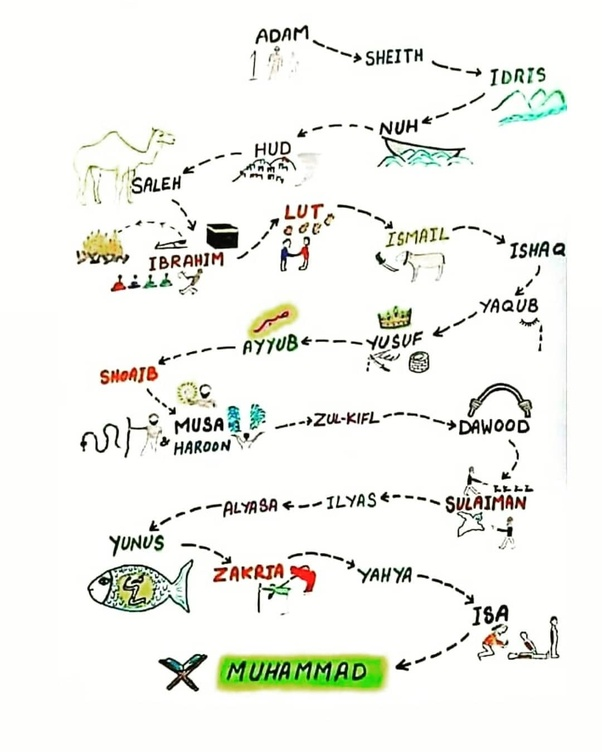 ADAM
SHEITH
IDRIS
NUH
HUD
SALEH
IBRAHIM
LUT
ISMAIL
ISHAQ
YAQUB
YUSUF
صبر
AYYUB
SHOAIB
MUSA
& HAROON
ZUL-KIFL
DAWOOD
SULAIMAN
ILYAS
ALYASA
YUNUS
ZAKRIA
YAHYA
ISA
MUHAMMAD